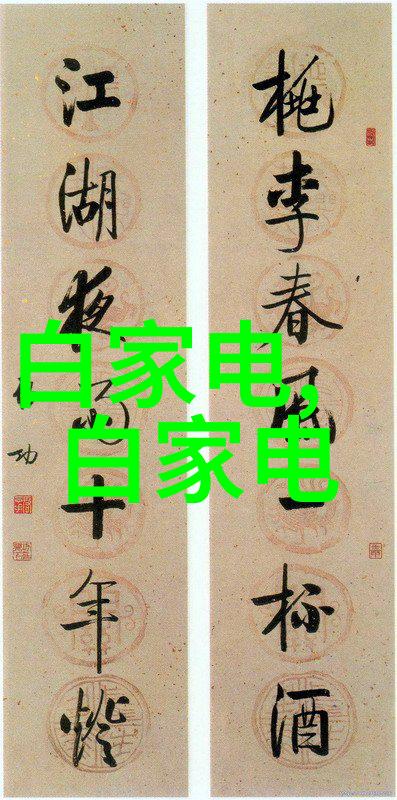 桃李春風一杯酒
江湖夜雨十年燈
功
白家电,
白家电